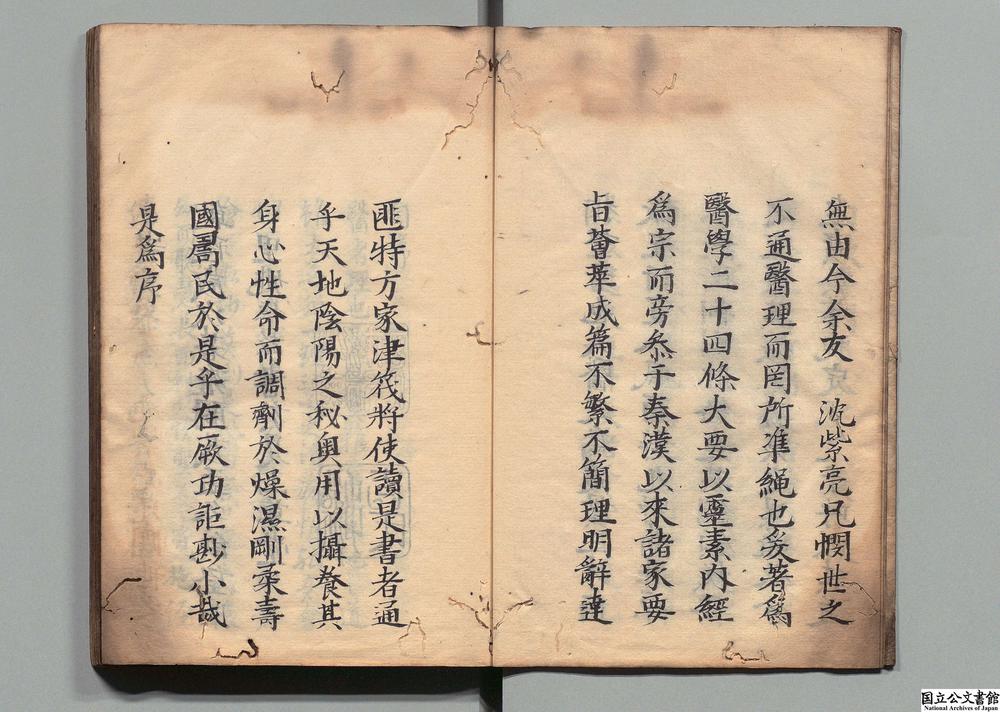 無由今余友 沈紫亮凡憫世之
不通醫理而罔所準繩也爰著為
醫學二十四條大要以靈素内經
爲宗而旁叅于秦漢以來諸家要
旨薈萃成篇不繁不簡理明辭達
匪特方家津筏將使讀是書者通
乎天地陰陽之秘奥用以攝養其
身心性命而調劑於燥濕剛柔壽
國
民於是乎在厥功詎尠小哉
是爲序
国立公文書館
National Archives of Japan